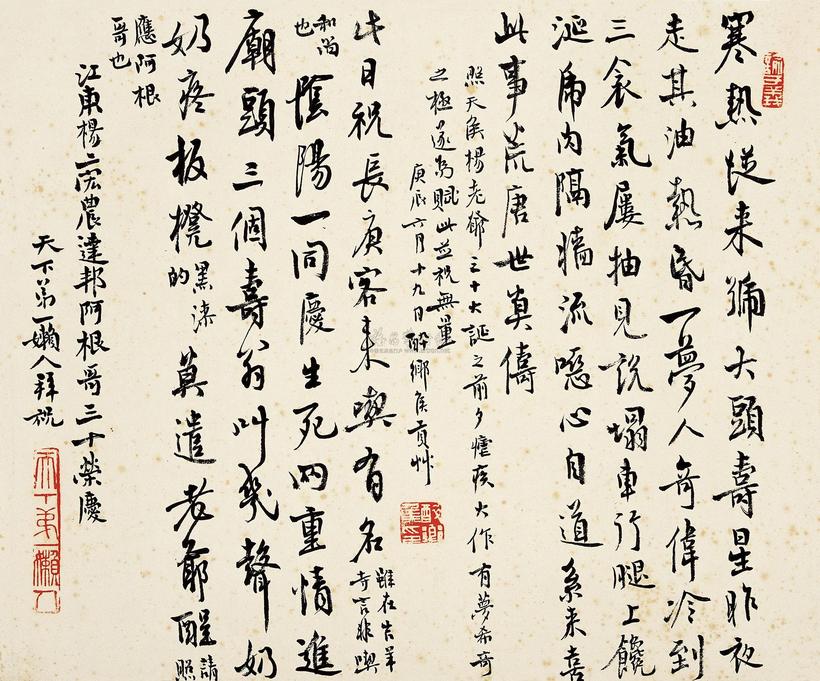 寒熱從來獅大頭壽星昨夜
走其油熱昏一夢人奇偉冷到
三衾氣屢抽見說塌車行腿上饞
涎廊肉隔牆流噁心自道系来喜
此事荒唐世莫儔
照天侯楊老爺三十大誕之前夕瘧疾大作有夢希奇
之極遂為賦此並祝無量
庚辰六月十九日醉鄉侯貢艸
生日祝長庚客来喫有名
雖在吉羊
寺言非喫
和尚
也
陰陽一同慶生死两重情進
廟頭三個壽翁叫幾聲奶
奶疼板櫈
黑漆
的
莫遣老爺醒
請照
應阿根
哥也
江東楊宏農達邦阿根哥三十榮慶
天下第一懶人拜祝
天下第一懶人